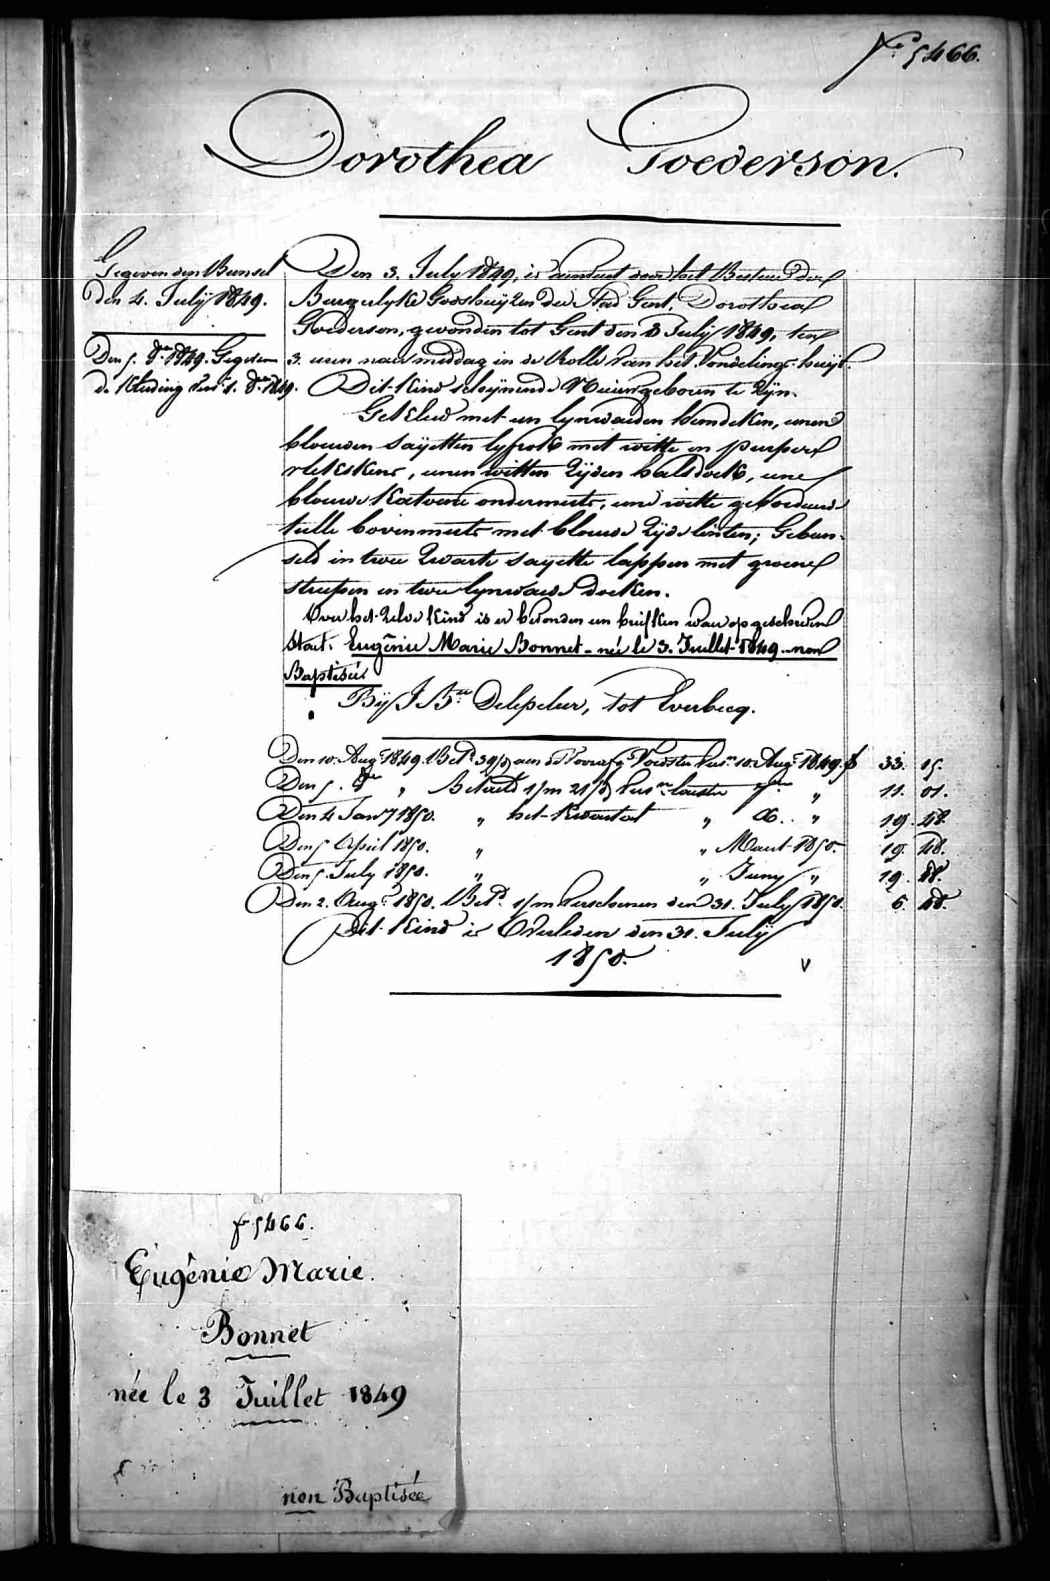 f° 5466.
Dorothea Goederson.
Gegeven den Bunsel
den 4. Julij 1849.
Den 5. do 1849. Gegeven
de Kleeding
Den 3. July 1849, is aenveert door het Bestuer der
Burgerlyke Godshuyzen der Stad Gent, Dorothea
Goederson, gevonden tot Gent den 3 July 1849, ten
3. uren naer middag in de Rolle van het Vondelings-huys.
Dit Kind schynende Nieuwgeboren te Zyn.
Gekleed met een lynwaeden hemdeken, eenen
blauwen sayetten lyfrok met witte en purper
vlekskens, eenen witten Zyden halsdoek, eene
blauwe Katoene ondermuts, eene witte geborduerde
tulle bovenmuts met blauwe Zyde linten; Gebun-
seld in twee Zwarte sayette lappen met groene
strepen en twee lynwaede doeken.
Over het Zelve Kind is er bevonden een briefken waer op geschreven
Staet. Eugénie Marie Bonnet - née le 3. Juillet 1849 - non
Baptisée
Bij J Bte Delepeleer, tot Everbecq.
Den 10. Augt 1849. Betd 10. Augt 1849. f 33. 15.
Den 5. 8bre " Betaeld 1/m 21/d 7bre " 11. 01.
Den 4 Jany 1850. " het Kwartael " X. " 19. 48.
Den 5 April 1850. " " Maert 1850. 19. 48.
Den 5. July 1850. " " Juny " 19. 48.
Den 2. Augt 1850. Betd 1/m verschenen den 31. July 1850. 6. 48.
Dit Kind is Overleden den 31. Julij
1850. v
f° 5466.
Eugénie Marie.
Bonnet
née le 3 Juillet 1849
non Baptisée